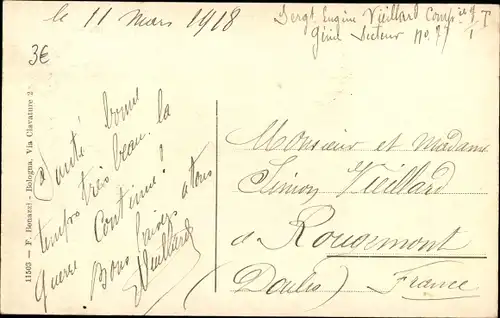 le 11 Mars 1918
Sergt Eugène Vieillard Compie
Génie Secteur No 77
3€
Santé bonne
temps très beau. la
guerre continue!
Bons baisers a tous
EVieillard
Monsieur et Madame
Simon Vieillard
a Rougemont
(Doubs) France
11503 - F. Bonazzi - Bologna, Via Clavature 2